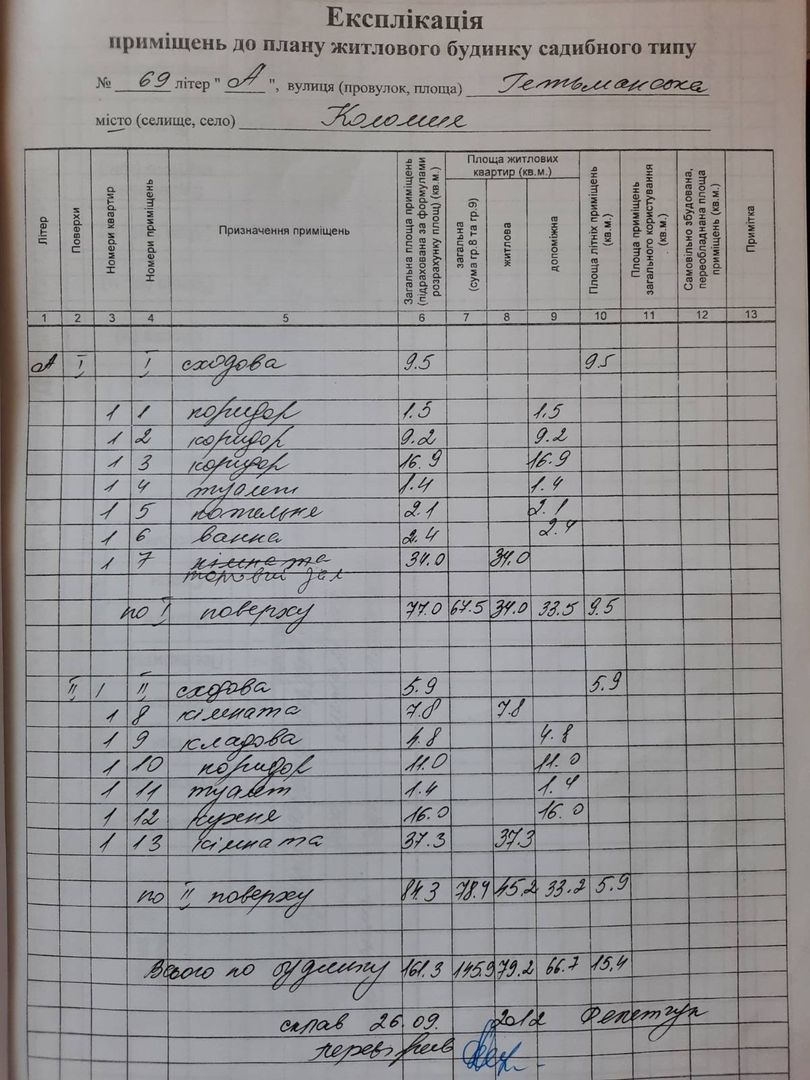 Експлікація
приміщень до плану житлового будинку садибного типу
№ 69 літер " А ", вулиця (провулок, площа) Гетьманська
місто (селище, село) Коломия
Літер
Поверхи
Номери квартир
Номери приміщень
Призначення приміщень
Загальна площа приміщень (підрахована за формулами розрахунку площ) (кв.м.)
Площа житлових квартир (кв.м.)
загальна (сума гр.8 та гр.9)
житлова
допоміжна
Площа літніх приміщень (кв.м.)
Площа приміщень загального користування (кв.м.)
Самовільно збудована, переобладнана площа приміщень (кв.м.)
Примітка
1 2 3 4 5 6 7 8 9 10 11 12 13
А І І сходова 9.5 9.5
1 1 коридор 1.5 1.5
1 2 коридор 9.2 9.2
1 3 коридор 16.9 16.9
1 4 туалет 1.4 1.4
1 5 котельня 2.1 2.1
1 6 ванна 2.4 2.4
1 7 кімната 34.0 34.0
торговий зал
по І поверху 77.0 67.5 34.0 33.5 9.5
ІІ 1 ІІ сходова 5.9 5.9
1 8 кімната 7.8 7.8
1 9 кладова 4.8 4.8
1 10 коридор 11.0 11.0
1 11 туалет 1.4 1.4
1 12 кухня 16.0 16.0
1 13 кімната 37.3 37.3
по ІІ поверху 84.3 78.4 45.2 33.2 5.9
Всього по будинку 161.3 145.9 79.2 66.7 15.4
склав 26.09. 2012
перевірив